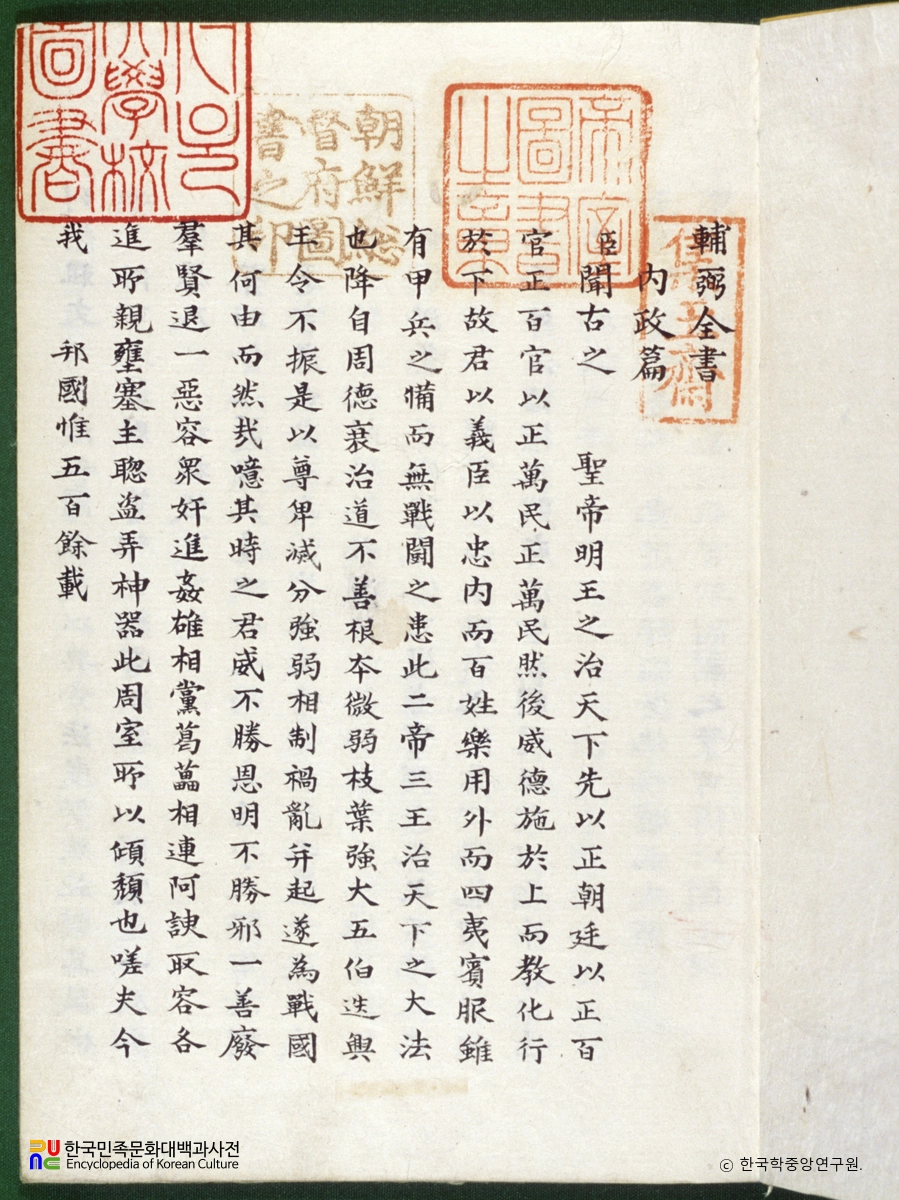 輔弼全書
內政篇
臣聞古之 聖帝明王之治天下先以正朝廷以正百
官正百官以正萬民正萬民然後威德施於上而教化行
於下故君以義臣以忠內而百姓樂用外而四夷賓服雖
有甲兵之備而無戰鬪之患此二帝三王治天下之大法
也降自周德衰治道不善根本微弱枝葉強大五伯迭興
王令不振是以尊卑滅分強弱相制禍亂并起遂為戰國
其何由而然哉噫其時之君威不勝恩明不勝邪一善廢
羣賢退一惡容衆奸進姦雄相黨葛藟相連阿諛取容各
進所親壅塞主聰盜弄神器此周室所以傾頹也嗟夫今
我 邦國惟五百餘載
帝室圖書之章
朝鮮總督府圖書之印
大學校圖書
한국민족문화대백과사전
Encyclopedia of Korean Culture
© 한국학중앙연구원.